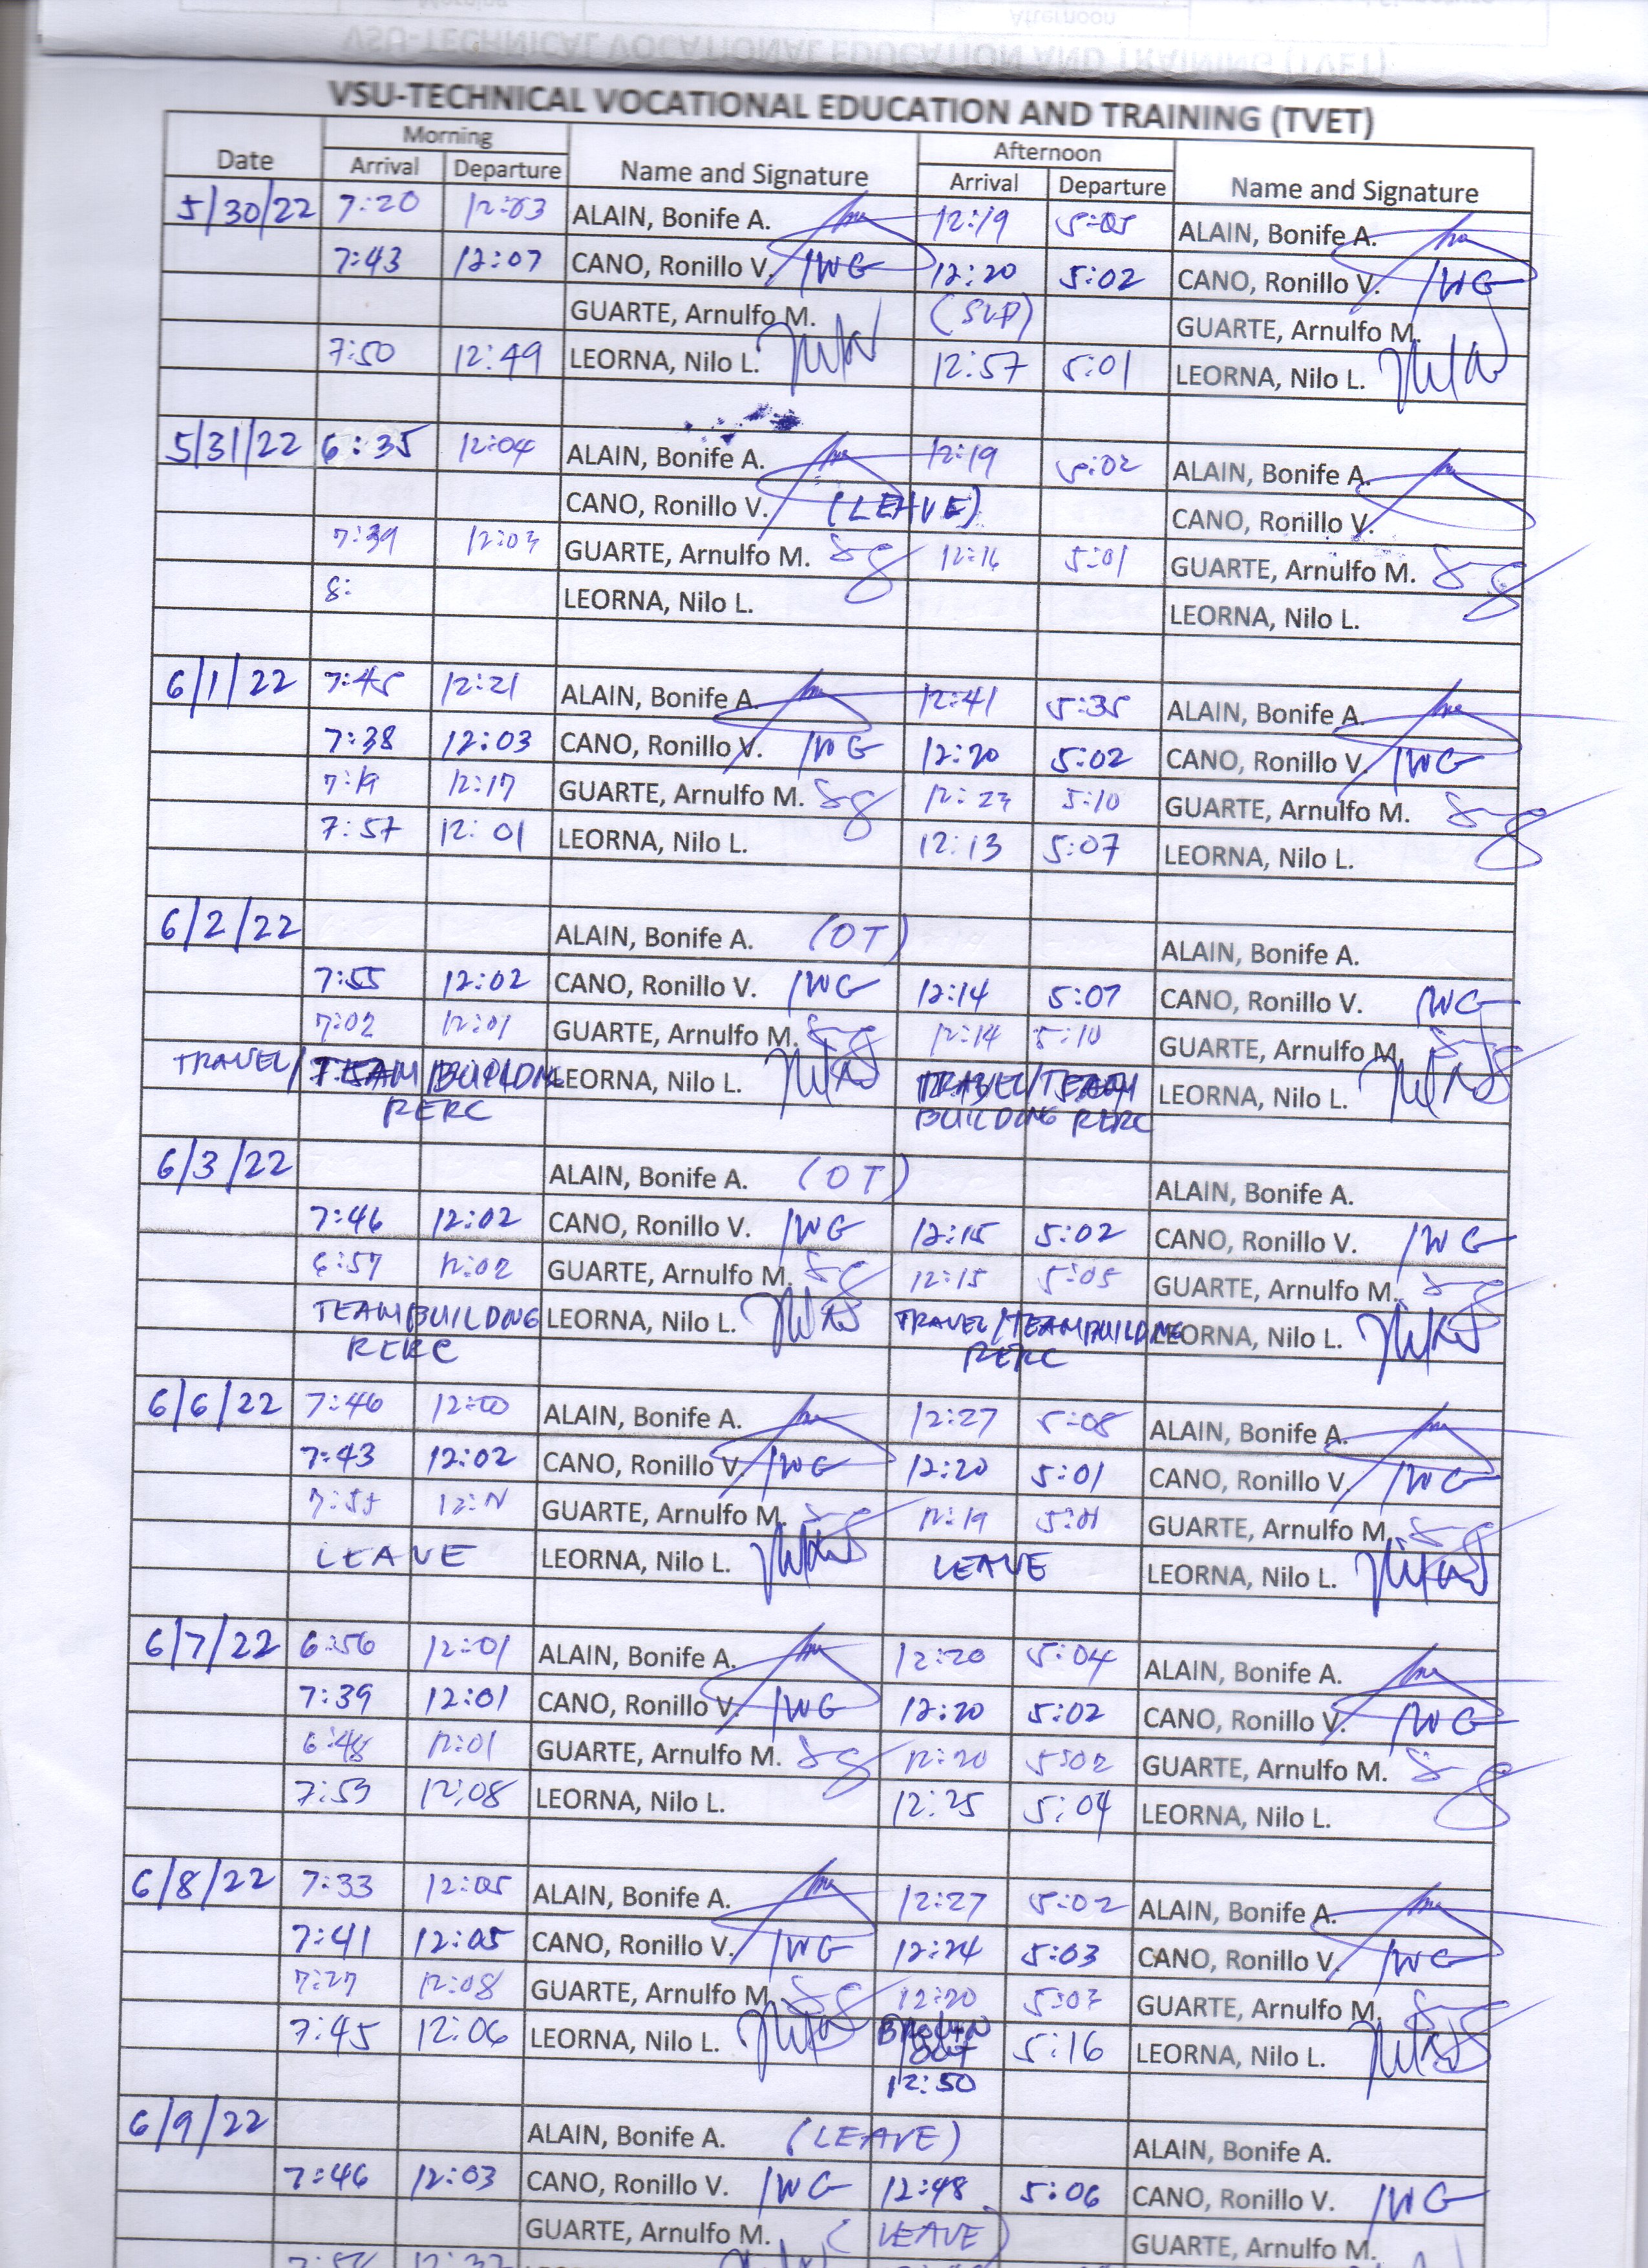 VSU-TECHNICAL VOCATIONAL EDUCATION AND TRAINING (TVET)
Date Morning Name and Signature Afternoon Name and Signature
Arrival Departure Arrival Departure
5/30/22 7:20 12:03 ALAIN, Bonife A. 12:19 5:05 ALAIN, Bonife A.
7:43 12:07 CANO, Ronillo V. 12:20 5:02 CANO, Ronillo V.
GUARTE, Arnulfo M. (SLP) GUARTE, Arnulfo M.
7:50 12:49 LEORNA, Nilo L. 12:57 5:01 LEORNA, Nilo L.
5/31/22 6:35 12:04 ALAIN, Bonife A. 12:19 5:02 ALAIN, Bonife A.
CANO, Ronillo V. (LEAVE) CANO, Ronillo V.
7:39 12:03 GUARTE, Arnulfo M. 12:16 5:01 GUARTE, Arnulfo M.
8: LEORNA, Nilo L. LEORNA, Nilo L.
6/1/22 7:45 12:21 ALAIN, Bonife A. 12:41 5:35 ALAIN, Bonife A.
7:38 12:03 CANO, Ronillo V. 12:20 5:02 CANO, Ronillo V.
7:19 12:17 GUARTE, Arnulfo M. 12:23 5:10 GUARTE, Arnulfo M.
7:57 12:01 LEORNA, Nilo L. 12:13 5:07 LEORNA, Nilo L.
6/2/22 ALAIN, Bonife A. (OT) ALAIN, Bonife A.
7:55 12:02 CANO, Ronillo V. 12:14 5:07 CANO, Ronillo V.
7:02 12:01 GUARTE, Arnulfo M. 12:14 5:10 GUARTE, Arnulfo M.
TRAVEL/TEAM BUILDING LEORNA, Nilo L. TRAVEL/TEAM LEORNA, Nilo L.
RERC BUILDING RERC
6/3/22 ALAIN, Bonife A. (OT) ALAIN, Bonife A.
7:46 12:02 CANO, Ronillo V. 12:15 5:02 CANO, Ronillo V.
6:57 12:02 GUARTE, Arnulfo M. 12:15 5:05 GUARTE, Arnulfo M.
TEAMBUILDING LEORNA, Nilo L. TRAVEL/TEAMBUILDING LEORNA, Nilo L.
RERC RERC
6/6/22 7:46 12:00 ALAIN, Bonife A. 12:27 5:08 ALAIN, Bonife A.
7:43 12:02 CANO, Ronillo V. 12:20 5:01 CANO, Ronillo V.
7:55 GUARTE, Arnulfo M. 12:19 5:01 GUARTE, Arnulfo M.
LEAVE LEORNA, Nilo L. LEAVE LEORNA, Nilo L.
6/7/22 6:56 12:01 ALAIN, Bonife A. 12:20 5:04 ALAIN, Bonife A.
7:39 12:01 CANO, Ronillo V. 12:20 5:02 CANO, Ronillo V.
6:48 12:01 GUARTE, Arnulfo M. 12:20 5:02 GUARTE, Arnulfo M.
7:59 12:08 LEORNA, Nilo L. 12:25 5:04 LEORNA, Nilo L.
6/8/22 7:33 12:05 ALAIN, Bonife A. 12:27 5:02 ALAIN, Bonife A.
7:41 12:05 CANO, Ronillo V. 12:24 5:03 CANO, Ronillo V.
7:27 12:08 GUARTE, Arnulfo M. 12:20 5:03 GUARTE, Arnulfo M.
7:45 12:06 LEORNA, Nilo L. BROWN OUT 5:16 LEORNA, Nilo L.
12:50
6/9/22 ALAIN, Bonife A. (LEAVE) ALAIN, Bonife A.
7:46 12:03 CANO, Ronillo V. 12:48 5:06 CANO, Ronillo V.
GUARTE, Arnulfo M. (LEAVE) GUARTE, Arnulfo M.